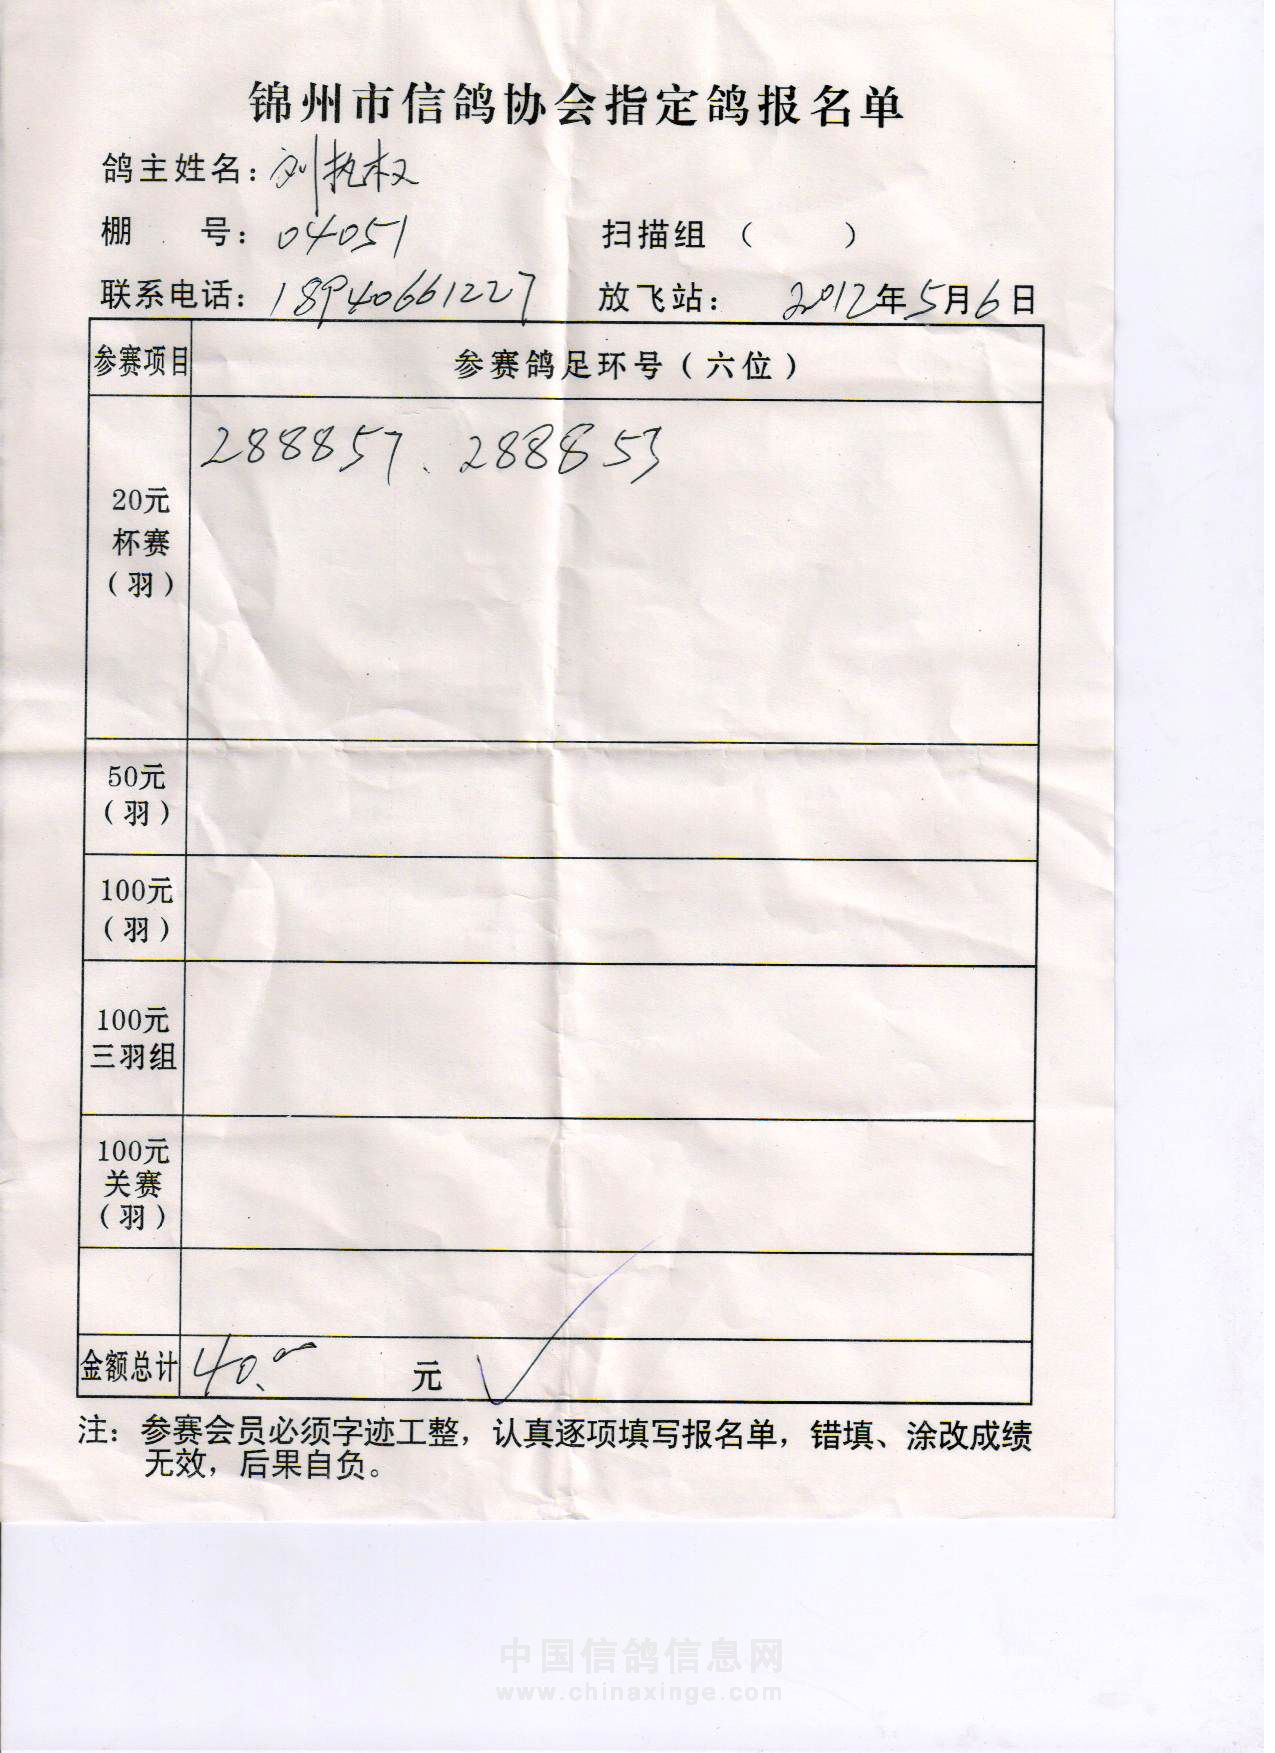 锦州市信鸽协会指定鸽报名单
鸽主姓名：刘执权
棚 号：04051 扫描组 （ ）
联系电话：18940661227 放飞站： 2012年5月6日
参赛项目 参赛鸽足环号（六位）
288857、288853
20元
杯赛
（羽）
50元
（羽）
100元
（羽）
100元
三羽组
100元
关赛
（羽）
金额总计 40.00 元
注：参赛会员必须字迹工整，认真逐项填写报名单，错填、涂改成绩
无效，后果自负。
中国信鸽信息网
www.chinaxinge.com